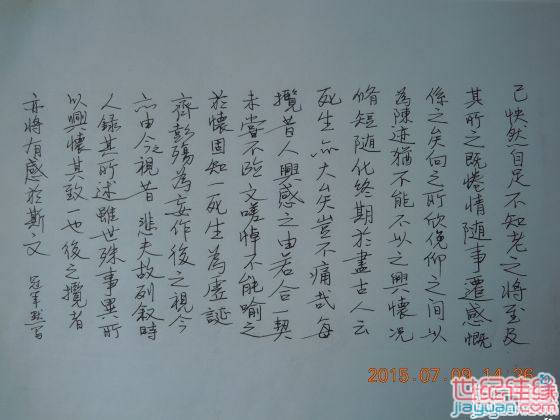 己快然自足不知老之將至及
其所之既惓情隨事遷感慨
係之矣向之所欣俛仰之間以
為陳迹猶不能不以之興懷况
脩短隨化終期於盡古人云
死生亦大矣豈不痛哉每
攬昔人興感之由若合一契
未嘗不臨文嗟悼不能喻之
於懷固知一死生為虛誕
齊彭殤為妄作後之視今
亦由今之視昔悲夫故列叙時
人録其所述雖世殊事異所
以興懷其致一也後之攬者
亦將有感於斯文
2015.07.09 14:26
世纪佳缘
jiayuan.com